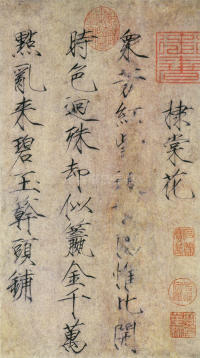 棣棠花
众芳红紫
惟此開
時色迥殊却似籝金千萬
點亂来碧玉幹頭鋪